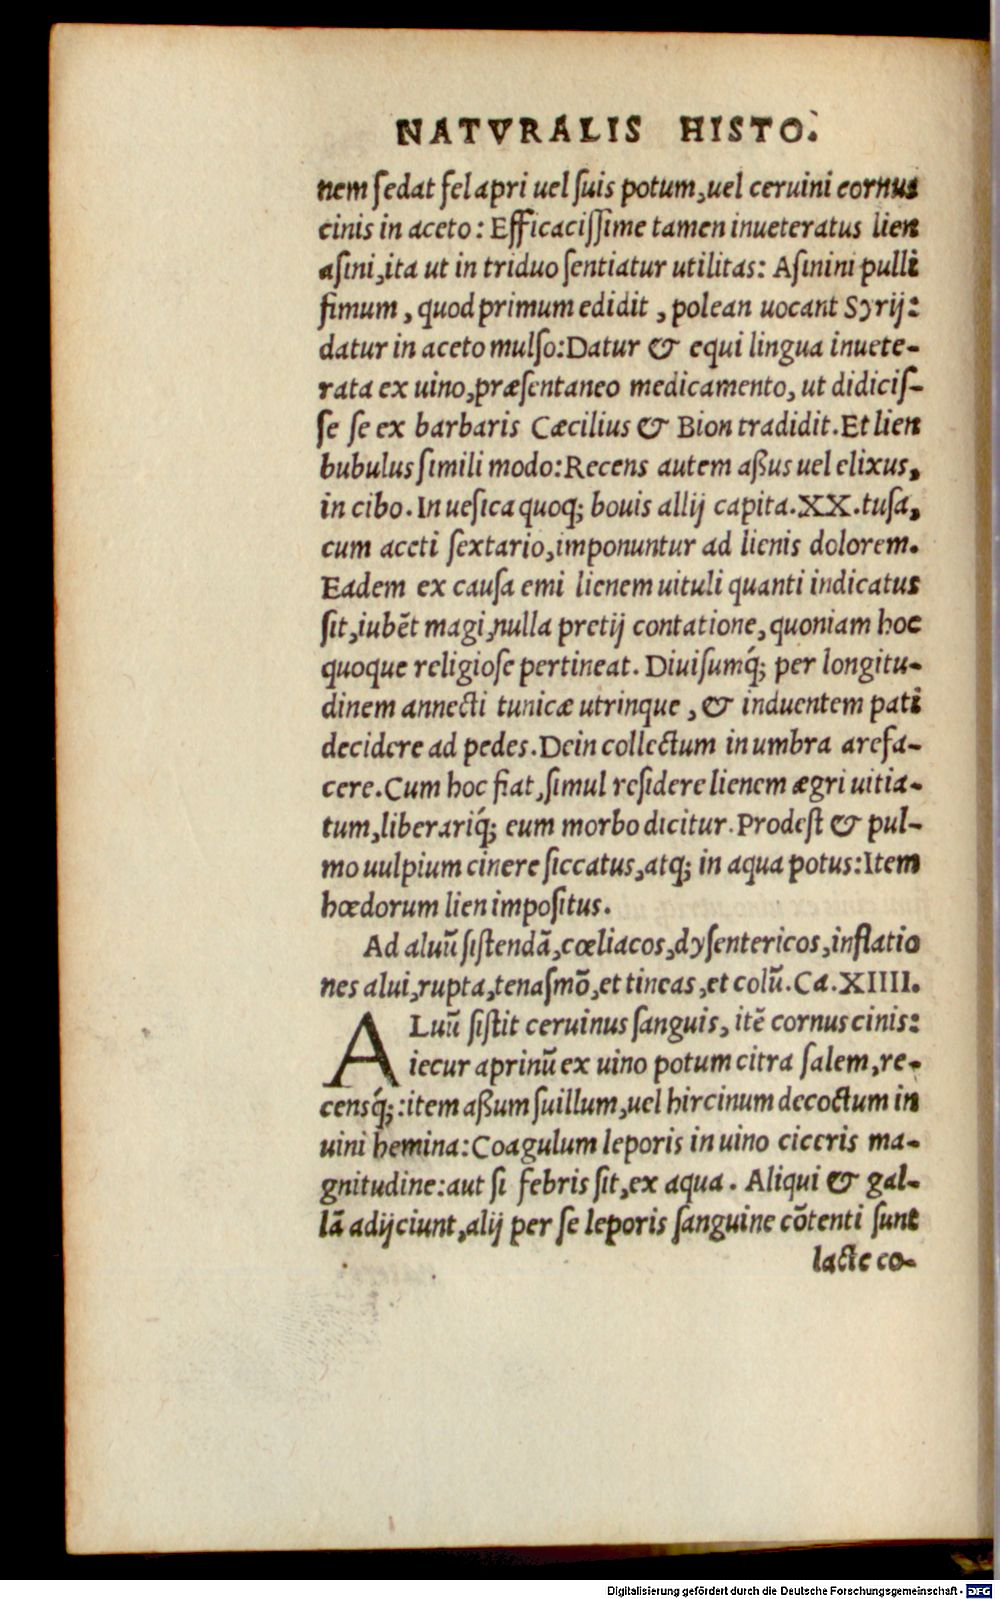 NATVRALIS HISTO.
nem ſedat fel apri uel ſuis potum, uel ceruini cornus
cinis in aceto: Efficaciſſime tamen inueteratus lien
aſini, ita ut in triduo ſentiatur utilitas: Aſinini pulli
fimum, quod primum edidit, polean uocant Syrij:
datur in aceto mulſo: Datur & equi lingua inuete-
rata ex uino, præſentaneo medicamento, ut didiciſ-
ſe ſe ex barbaris Cæcilius & Bion tradidit. Et lien
bubulus ſimili modo: Recens autem aßus uel elixus,
in cibo. In ueſica quoq; bouis allij capita. XX. tuſa,
cum aceti ſextario, imponuntur ad lienis dolorem.
Eadem ex cauſa emi lienem uituli quanti indicatus
ſit, iubēt magi, nulla pretij contatione, quoniam hoc
quoque religioſe pertineat. Diuiſumq́; per longitu-
dinem annecti tunicæ utrinque, & induentem pati
decidere ad pedes. Dein collectum in umbra arefa-
cere. Cum hoc fiat, ſimul reſidere lienem ægri uitia-
tum, liberariq́; eum morbo dicitur. Prodeſt & pul-
mo uulpium cinere ſiccatus, atq; in aqua potus: Item
hœdorum lien impoſitus.
Ad aluū ſiſtendā, cœliacos, dyſentericos, inflatio
nes alui, rupta, tenaſmō, et tineas, et colū. Ca. XIIII.
ALuū ſiſtit ceruinus ſanguis, itē cornus cinis:
iecur aprinū ex uino potum citra ſalem, re-
censq́;: item aßum ſuillum, uel hircinum decoctum in
uini hemina: Coagulum leporis in uino ciceris ma-
gnitudine: aut ſi febris ſit, ex aqua. Aliqui & gal-
lā adijciunt, alij per ſe leporis ſanguine cōtenti ſunt
lacte co-
Digitalisierung gefördert durch die Deutsche Forschungsgemeinschaft - DFG